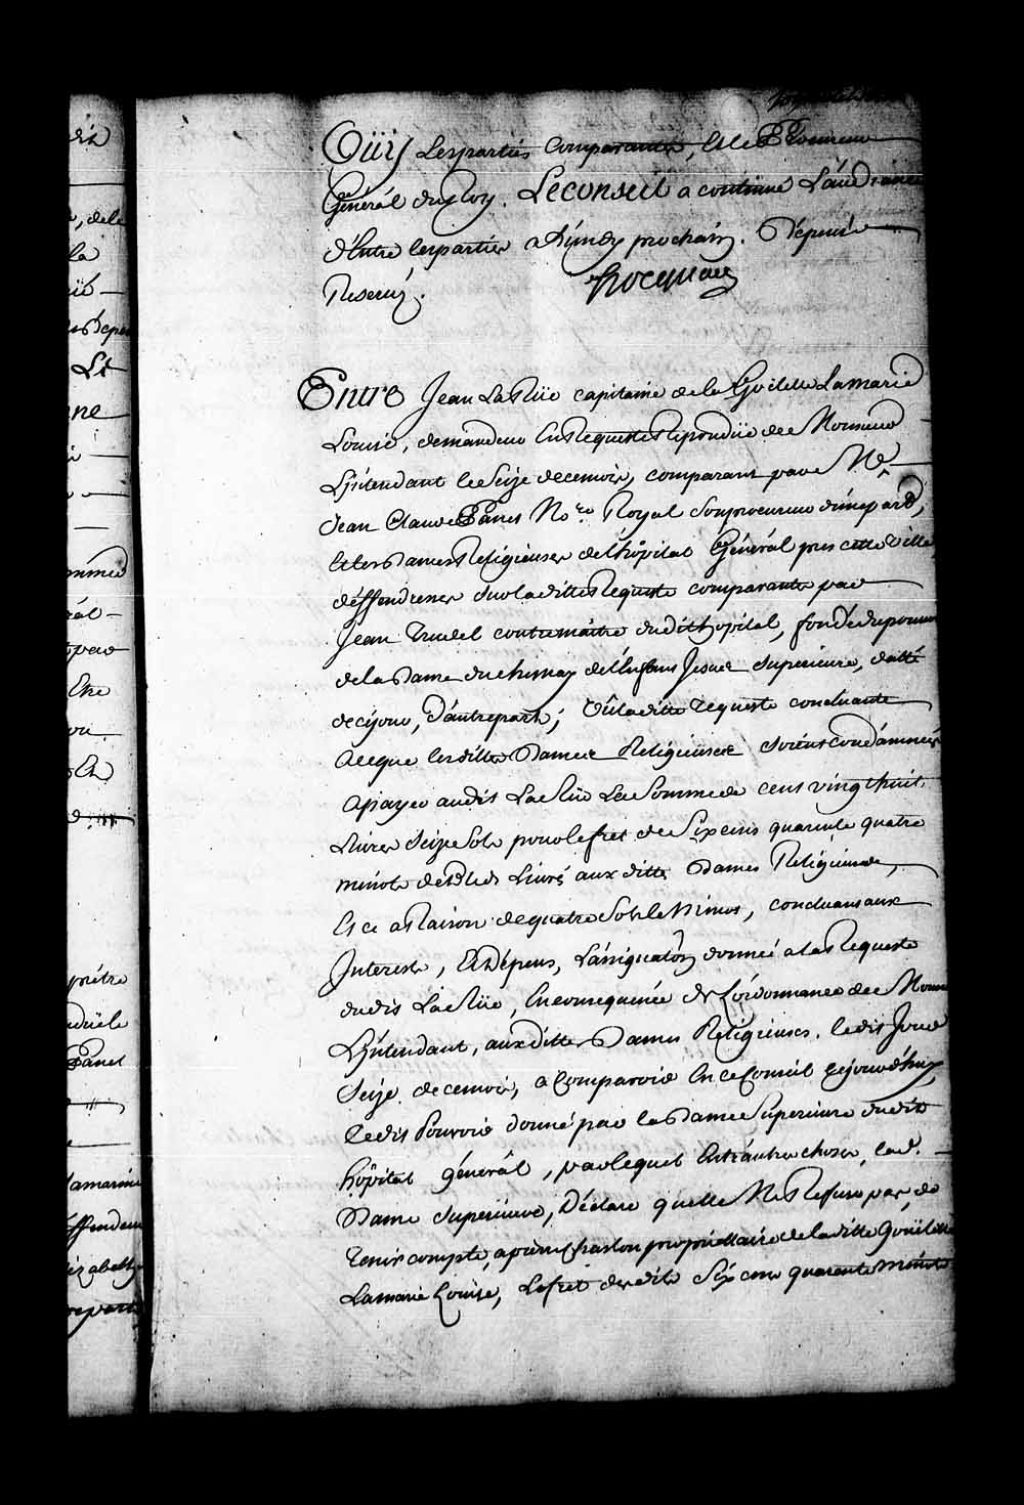 Oüis les parties comparantes, et le Procureur
Général du Roy. Le conseil a continué L'audiance
d'Entre les parties a Lundy prochain. Dépens
Reservés.
hocquart
Entre Jean La Rüe capitaine de la Goilette La marie
Louise, demandeur En Requeste Répondüe de Monsieur
L'jntendant le Seize de ce mois, comparant par Me.
Jean Claude Panet Nore. Royal son procureur d'une part,
Et les Dames Religieuses de l'hôpital Général prés cette ville
déffendresses sur la ditte Requeste comparantes par
Jean Trudel contremaitre dudit hopital, fondé de pouvoir
de la Dame duchesnay de l'Enfans Jesus Superieure, datté
de ce jour, d'autre part; Vû la ditte Requeste concluante
a ce que lesdittes Dames Religieuses soient condamnées
a payer audit La Rüe La Somme de cent vingt huit
Livres seize sols pour le fret de Six cens quarante quatre
minots de Bled Livré aux dittes Dames Religieuses,
Et ce a Raison de quatre sols le Minot, concluant aux
Interests, Et Dépens, L'assignaõn donné a la Requeste
dudit La Rüe, En consequence de L'ordonnance de Monsr
L'jntendant, aux dittes Dames Religieuses. ledit Jour
Seize de ce mois, a Comparoir En ce Conseil cejourd'huy
Ledit Pouvoir donné par la Dame Superieure dudit
hôpital général, par lequel Entr'autres choses, lad.
Dame superieure, Déclare quelle Ne Refuse pas, de
Tenir compte, a pierre chaslon propriettaire de la ditte Goüilette
La marie Louise, Le fret desdits Six cens quarante minots